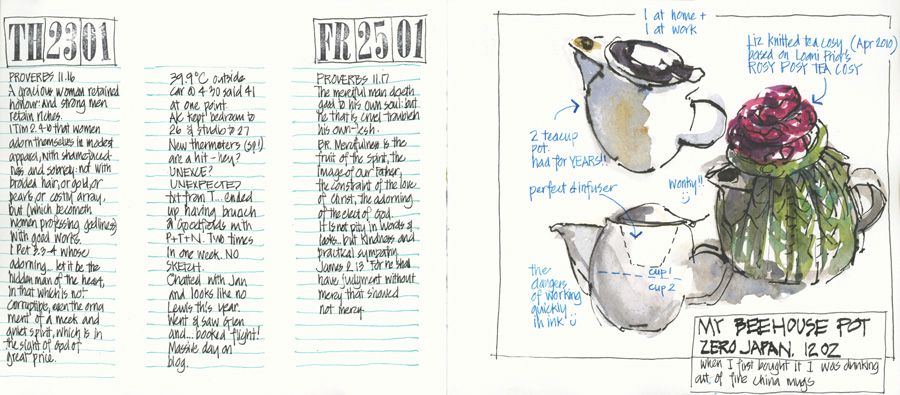 TH 23 01
PROVERBS 11.16
A gracious woman retained
honour: and strong men
retain riches.
1 Tim 2.9-10 that women
adorn themselves in modest
apparel, with shamefaced-
ness and sobriety: not with
braided hair, or gold, or
pearls, or costly array,
but (which becometh
women professing godliness)
with good works.
1 Pet 3.3-4 whose
adorning... let it be the
hidden man of the heart,
in that which is not
corruptible, even the orna
ment of a meek and
quiet spirit, which is in
the sight of God of
great price.
39.9°C outside
car @ 4.30 said 41
at one point.
A/c kept bedroom to
26 & studio to 27
New thermometers (sp!)
are a hit - hey?
UNEXPECTED
txt from T... ended
up having brunch
@ Goodfields with
P+T+N. Two times
in one week. NO
SKETCH.
Chatted with Jan
and looks like no
Lewis this year.
Went & saw Glen
and... booked flight!
Massive day on
blog.
FR 25 01
PROVERBS 11.17
The merciful man doeth
good to his own soul: but
he that is cruel troubleth
his own flesh.
BR. Mercifulness is the
fruit of the spirit, the
image of our Father,
the constraint of the love
of Christ, the adorning
of the elect of God.
It is not pity in words or
looks... but kindness and
practical sympathy.
James 2.13 For he shall
have judgment without
mercy that showed
not mercy.
1 at home +
1 at work
Liz knitted tea cosy (Apr 2010)
based on Loani Prior's
ROSY POSY TEA COSY
2 teacup
pot.
had for YEARS!!
perfect & infuser
wonky!!
cup 1
cup 2
the
dangers
of working
quickly
in ink
MY BEEHOUSE POT
ZERO JAPAN. 12 OZ
when I first bought it I was drinking
out of fine china mugs